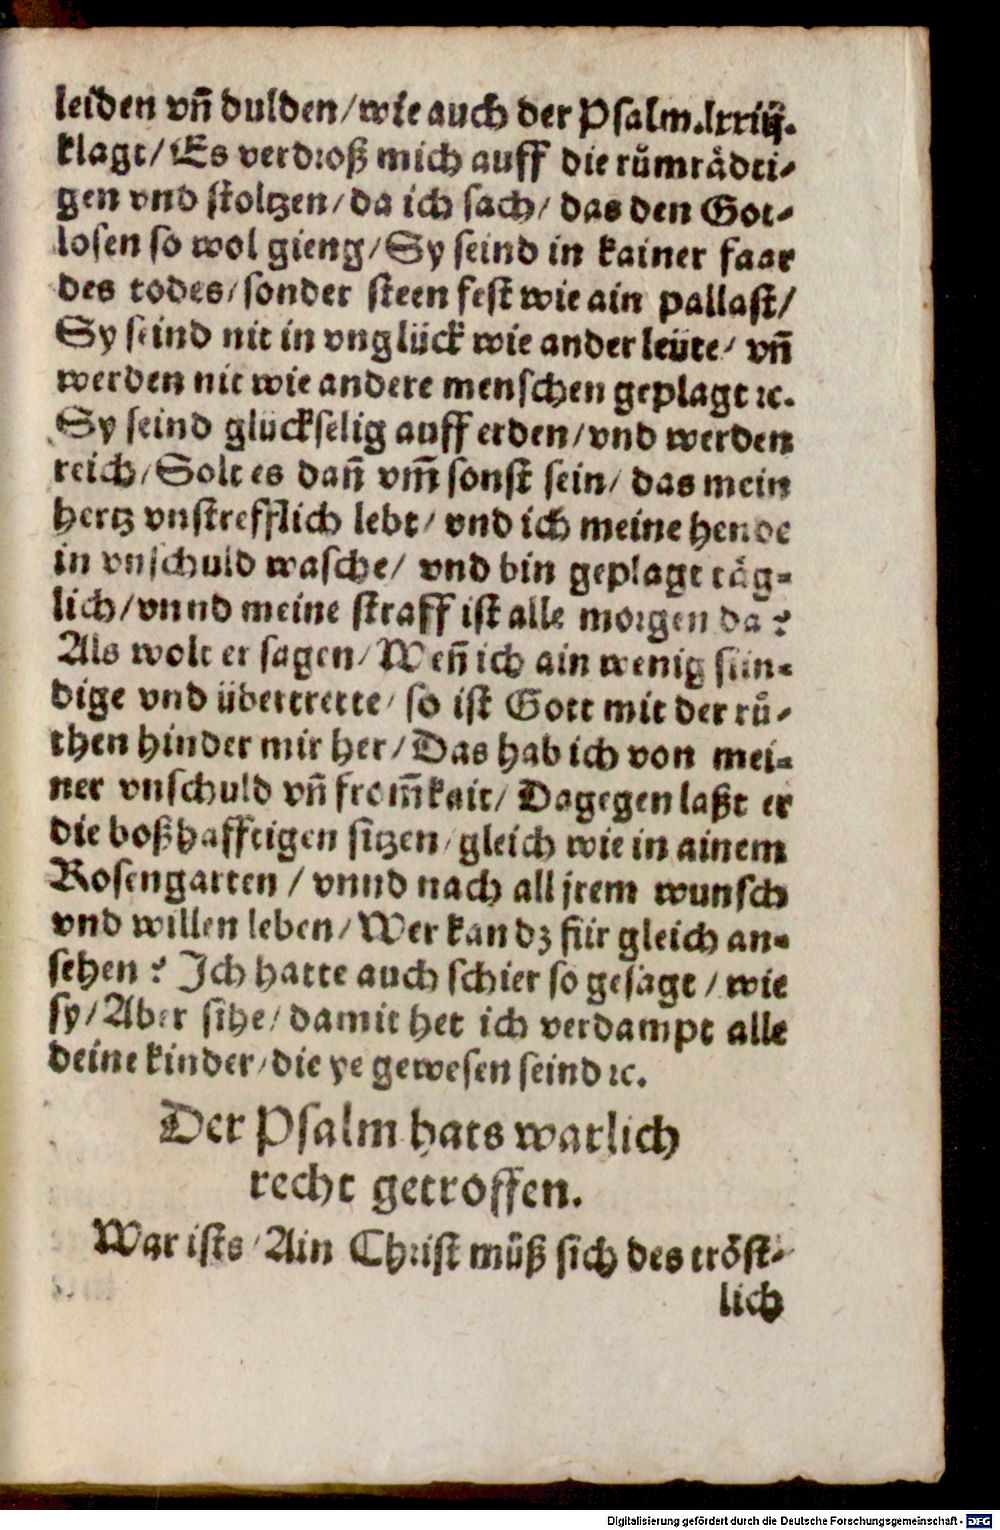 leiden vñ dulden/wie auch der Psalm.lxxiij.
klagt/Es verdroß mich auff die růmrådti-
gen vnd stoltzen/da ich sach/das den Got-
losen so wol gieng/Sy seind in kainer faar
des todes/sonder steen fest wie ain pallast/
Sy seind nit in vnglück wie ander leüte/vñ
werden nit wie andere menschen geplagt ꝛc.
Sy seind glückselig auff erden/vnd werden
reich/Solt es dañ vm̃ sonst sein/das mein
hertz vnstrefflich lebt/vnd ich meine hende
in vnschuld wasche/vnd bin geplagt tåg-
lich/vnnd meine straff ist alle morgen da?
Als wolt er sagen/Weñ ich ain wenig sün-
dige vnd übertrette/so ist Gott mit der rů-
then hinder mir her/Das hab ich von mei-
ner vnschuld vñ from̃kait/Dagegen laßt er
die boßhafftigen sitzen/gleich wie in ainem
Rosengarten/vnnd nach all jrem wunsch
vnd willen leben/Wer kan dz für gleich an-
sehen? Ich hatte auch schier so gesagt/wie
sy/Aber sihe/damit het ich verdampt alle
deine kinder/die ye gewesen seind ꝛc.
Der Psalm hats warlich
recht getroffen.
War ists/Ain Christ můß sich des tröst-
lich
Digitalisierung gefördert durch die Deutsche Forschungsgemeinschaft - DFG